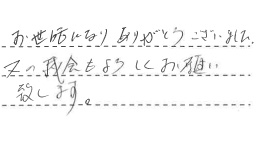 お世話になりありがとうございました。
又の機会もよろしくお願い
致します。